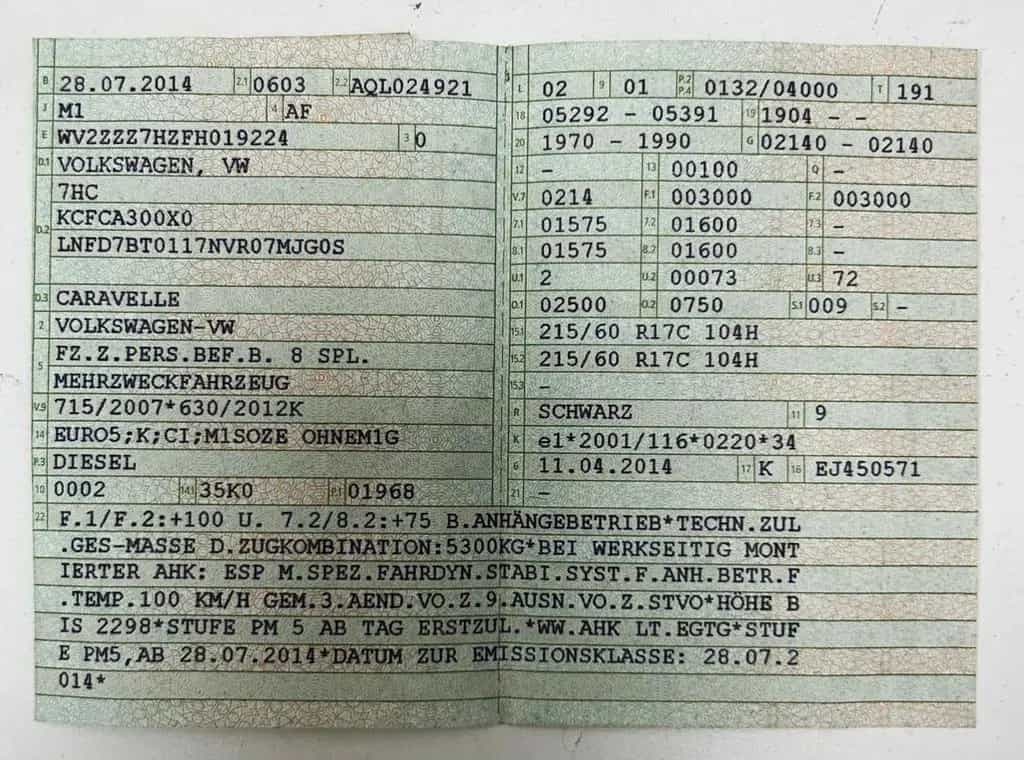 B 28.07.2014 2.1 0603 2.2 AQL024921
J M1 4 AF
E WV2ZZZ7HZFH019224 3 0
D.1 VOLKSWAGEN, VW
7HC
D.2 KCFCA300X0
LNFD7BT0117NVR07MJG0S
D.3 CARAVELLE
2 VOLKSWAGEN-VW
5 FZ.Z.PERS.BEF.B. 8 SPL.
MEHRZWECKFAHRZEUG
V.9 715/2007*630/2012K
14 EURO5;K;CI;M1SOZE OHNEM1G
P.3 DIESEL
10 0002 14.1 35K0 P.1 01968
L 02 9 01 P.2 P.4 0132/04000 T 191
18 05292 - 05391 19 1904 - -
20 1970 - 1990 G 02140 - 02140
12 - 13 00100 Q -
V.7 0214 F.1 003000 F.2 003000
7.1 01575 7.2 01600 7.3 -
8.1 01575 8.2 01600 8.3 -
U.1 2 U.2 00073 U.3 72
O.1 02500 O.2 0750 S.1 009 S.2 -
15.1 215/60 R17C 104H
15.2 215/60 R17C 104H
15.3 -
R SCHWARZ 11 9
K e1*2001/116*0220*34
6 11.04.2014 17 K 16 EJ450571
21 -
22 F.1/F.2:+100 U. 7.2/8.2:+75 B.ANHÄNGEBETRIEB*TECHN.ZUL
.GES-MASSE D.ZUGKOMBINATION:5300KG*BEI WERKSEITIG MONT
IERTER AHK: ESP M.SPEZ.FAHRDYN.STABI.SYST.F.ANH.BETR.F
.TEMP.100 KM/H GEM.3.AEND.VO.Z.9.AUSN.VO.Z.STVO*HÖHE B
IS 2298*STUFE PM 5 AB TAG ERSTZUL.*WW.AHK LT.EGTG*STUF
E PM5,AB 28.07.2014*DATUM ZUR EMISSIONSKLASSE: 28.07.2
014*